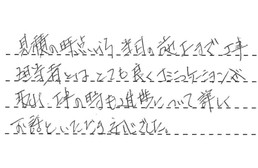 見積の時点から当日の施工まで工事
担当者とはとても良くコミュニケーションが
取れ、工事の時も進捗について詳しく
お話していただき安心でした。